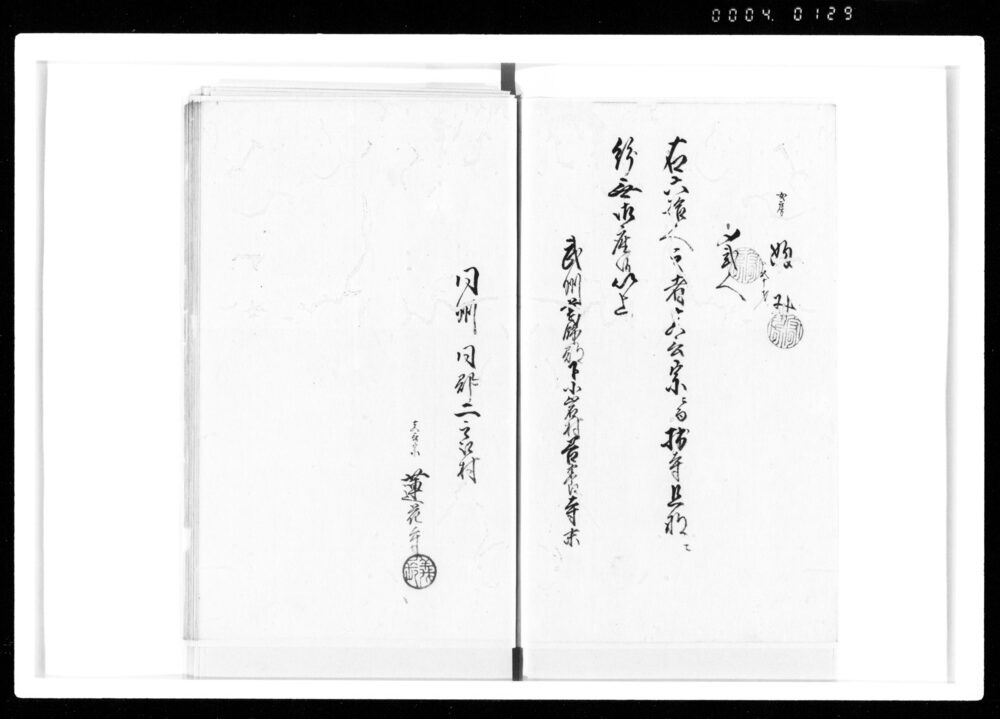 0004 0129
女房
〆弐人
右六拾人之者真言宗ニ而拙寺旦那ニ
紛無御座候以上
武州葛飾郡下小岩村善養寺末
同州同郡二之江村
真言宗 蓮花寺